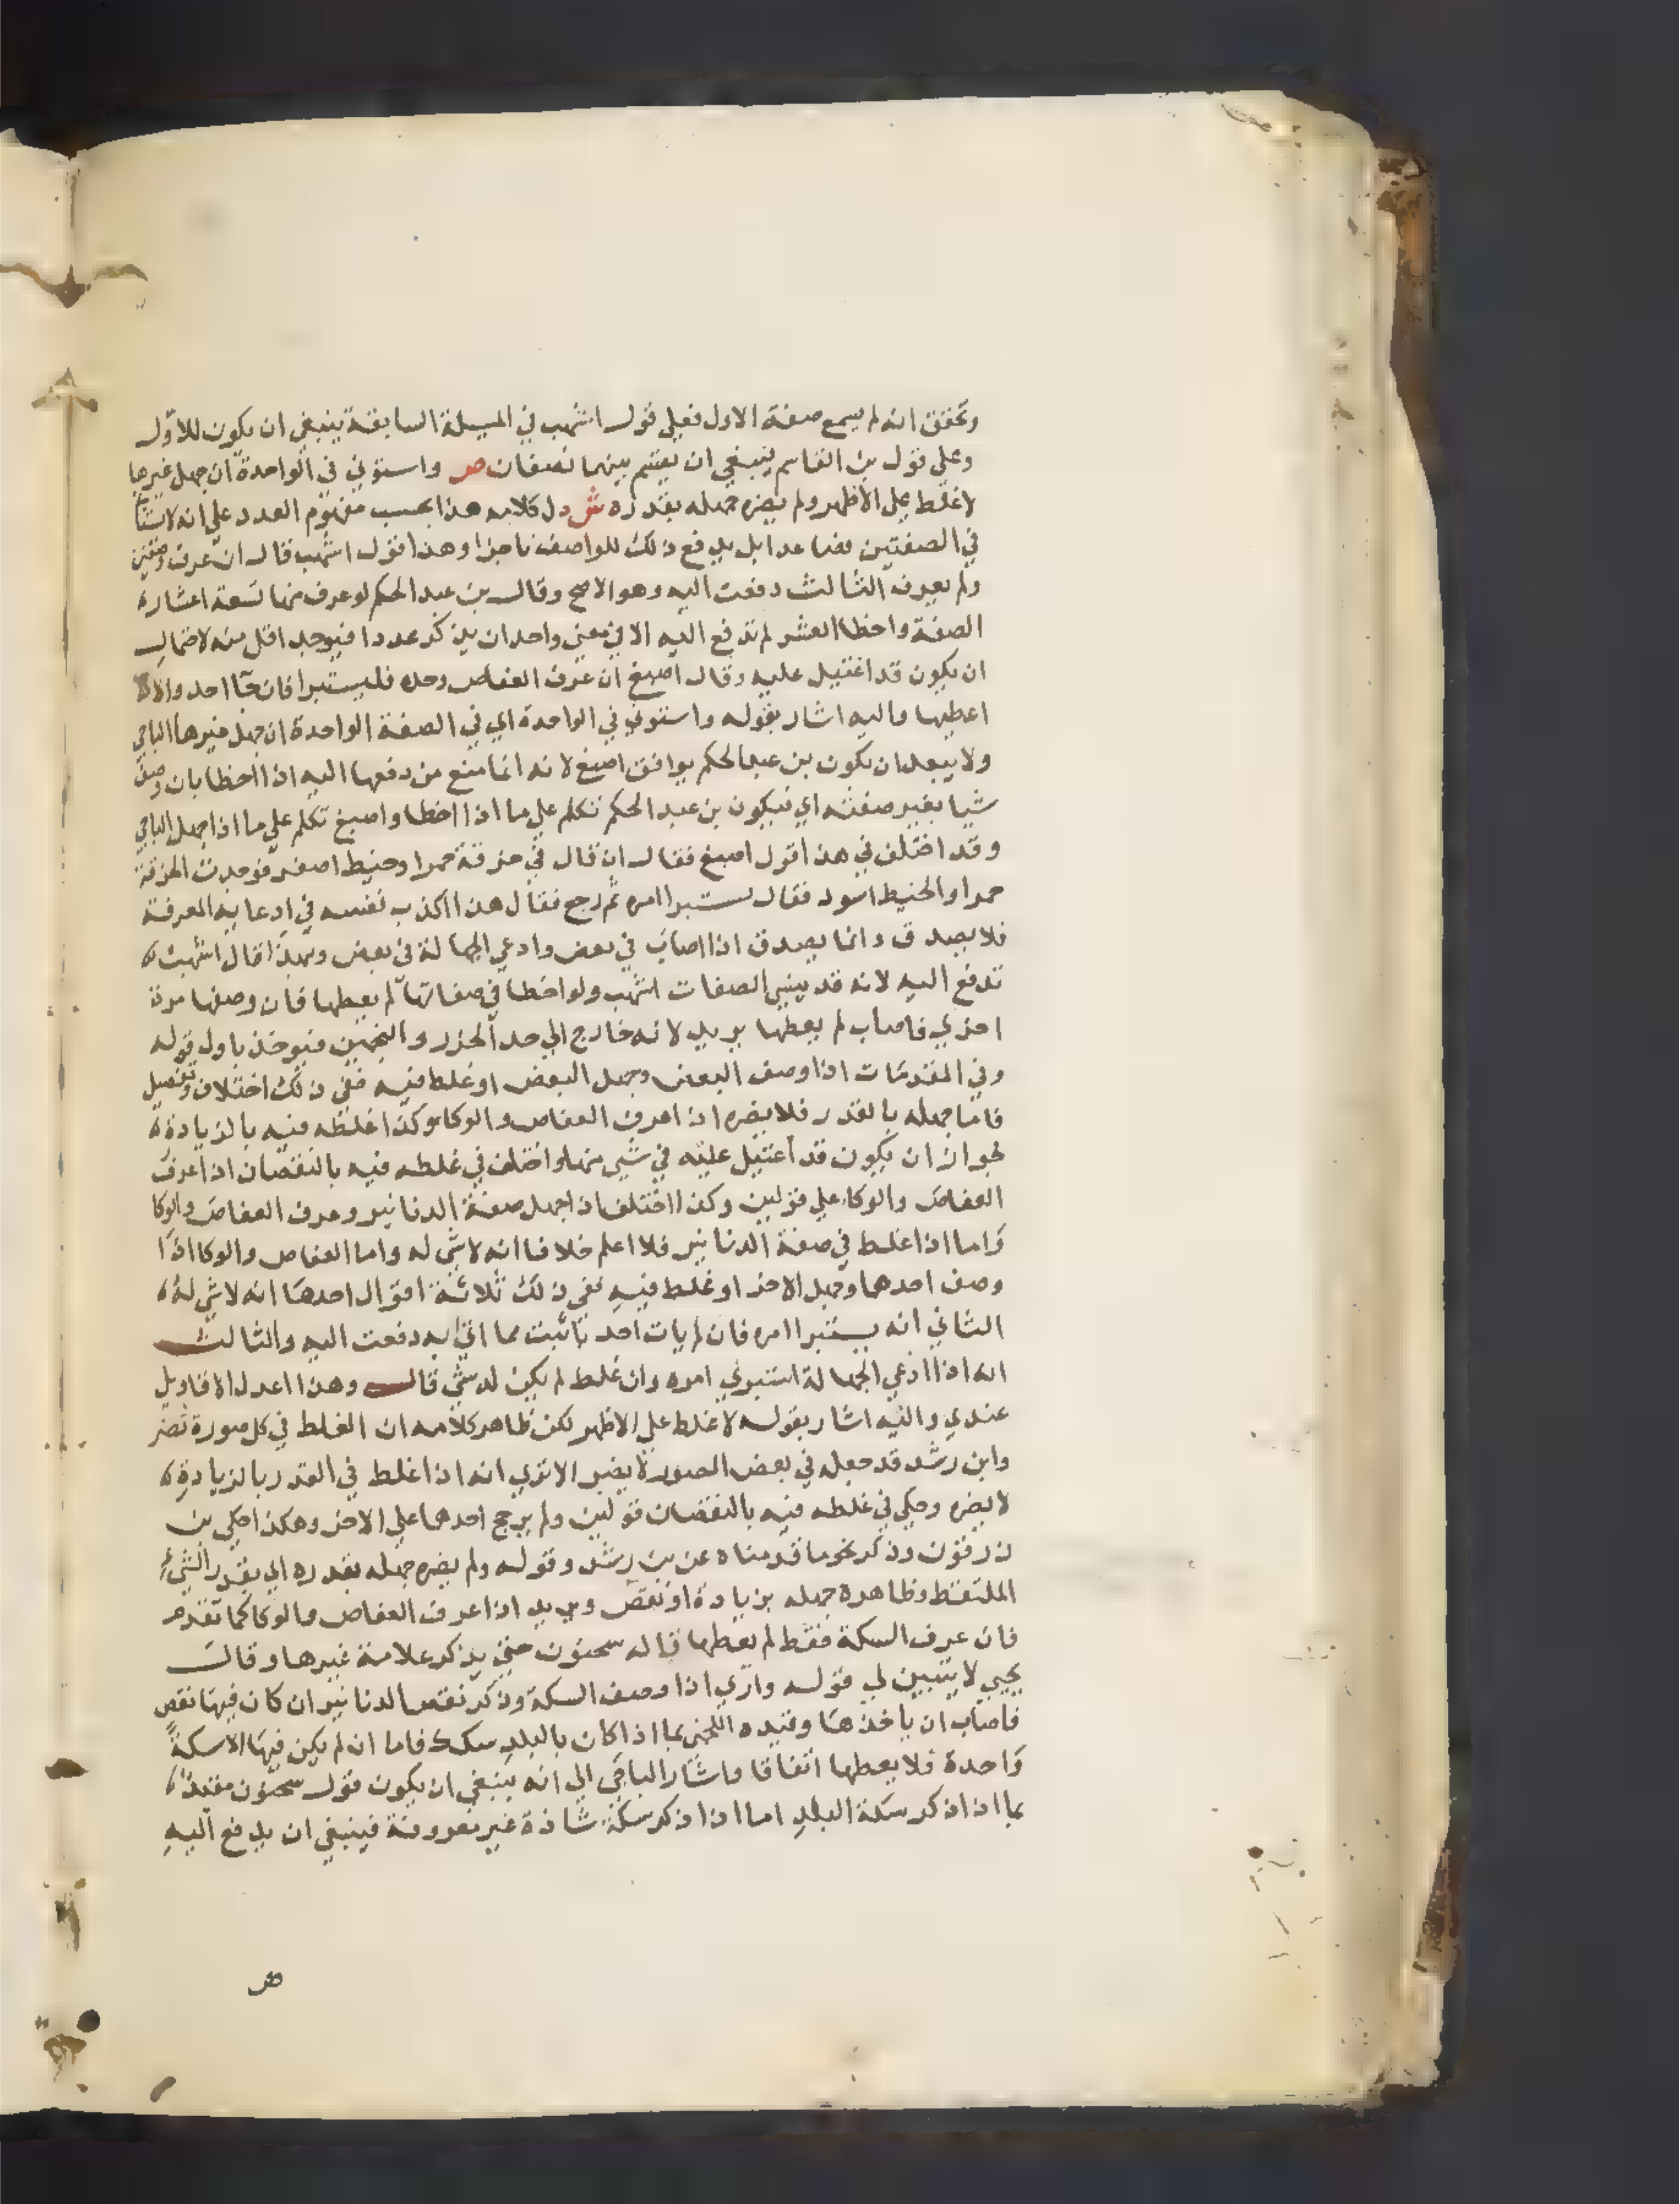 وتحقق انه لم يسمع صفة الاول فعلى قول اشهب في المسيلة السابقة ينبغي ان يكون للاول
وعلي قول بن القاسم ينبغي ان يقتسم بينهما نصفان ص واستوني في الواحدة ان جهل غيرها
لا غلط على الاظهر ولم يضره جهله بقدره ش دل كلامه هذا بحسب مفهوم العدد علي انه لا يستانا
في الصفتين فصاعدا بل يدفع ذلك للواصف ناجزا وهذا قول اشهب قال ان عرف وصفين
ولم يعرف الثالث دفعت اليه وهو الاصح وقال بن عبد الحكم لو عرف منها تسعة اعشار
الصفة واخطا العشر لم تدفع اليه الا في معنى واحد ان يذكر عددا فيوجد اقل منه لاحتمال
ان يكون قد اغتيل عليه وقال اصبغ ان عرف العفاص وحده فليستبرا فان جا احد والا
اعطيها واليه اشار بقوله واستوني في الواحدة اي في الصفة الواحدة ان جهل غيرها الباجي
ولا يبعد ان يكون بن عبد الحكم يوافق اصبغ لانه انما منع من دفعها اليه اذا اخطا بان وصف
شيا بغير صفته اي فيكون بن عبد الحكم تكلم علي ما اذا اخطا واصبغ تكلم علي ما اذا جهل الباجي
وقد اختلف في هذا قول اصبغ فقال ان قال في خرقة حمرا وخيط اصفر فوجدت الخرقة
حمرا والخيط اسود فقال يستبرا امره ثم رجع فقال هذا اكذب نفسه في ادعايه المعرفة
فلا يصدق وانما يصدق اذا اصاب في بعض وادعي الجهالة في بعض وبهذا قال اشهب
تدفع اليه لانه قد ينسي الصفات اشهب ولو اخطا في صفاتها لم يعطها فان وصفها مرة
اخري فاصاب لم يعطها يريد لانه خارج الي حد الحزر والتخمين فيوخذ باول قوله
وفي المقدمات اذا وصف البعض وجهل البعض او غلط فيه ففي ذلك اختلاف وتفصيل
فاما جهله بالقدر فلا يضره اذا عرف العفاص والوكا وكذا غلطه فيه بالزيادة
لجواز ان يكون قد اغتيل عليه في شي منها واختلف في غلطه فيه بالنقصان اذا عرف
العفاص والوكاء علي قولين وكذا اختلف اذا جهل صفة الدنانير وعرف العفاص والوكا
واما اذا غلط في صفة الدنانير فلا اعلم خلافا انه لا شي له واما العفاص والوكا اذا
وصف احدهما وجهل الاخر او غلط فيه ففي ذلك ثلاثة اقوال احدها انه لا شي له
الثاني انه يستبرا امره فان لم يات احد باثبت مما اتي به دفعت اليه والثالث
انه اذا ادعي الجهالة استبري امره وان غلط لم يكن له شي قال وهذا اعدل الاقاويل
عندي واليه اشار بقوله لا غلط علي الاظهر لكن ظاهر كلامه ان الغلط في كل صورة تضر
وابن رشد قد جعله في بعض الصور لا يضر الا تري انه اذا غلط في القدر بالزيادة
لا يضره وحكي في غلطه فيه بالنقصان قولين ولم يرجح احدهما علي الاخر وهكذا حكي بن
زرقون وذكر نحو ما قدمناه عن بن رشد وقوله ولم يضره جهله بقدره اي بقدر الشيء
الملتقط وظاهره جهله بزيادة او نقص ويريد اذا عرف العفاص والوكا كما تقدم
فان عرف السكة فقط لم يعطها قاله سحنون حتي يذكر علامة غيرها وقال
يحيي لا يتبين لي قوله واري اذا وصف السكة وذكر نقص الدنانير ان كان فيها نقص
فاصاب ان ياخذها وقيده اللخمي بما اذا كان بالبلد سكك فاما ان لم يكن فيها الا سكة
واحدة فلا يعطها اتفاقا واشار الباجي الي انه ينبغي ان يكون قول سحنون مقيدا
بما اذا ذكر سكة البلد اما اذا ذكر سكة شاذة غير معروفة فينبغي ان يدفع اليه
ص